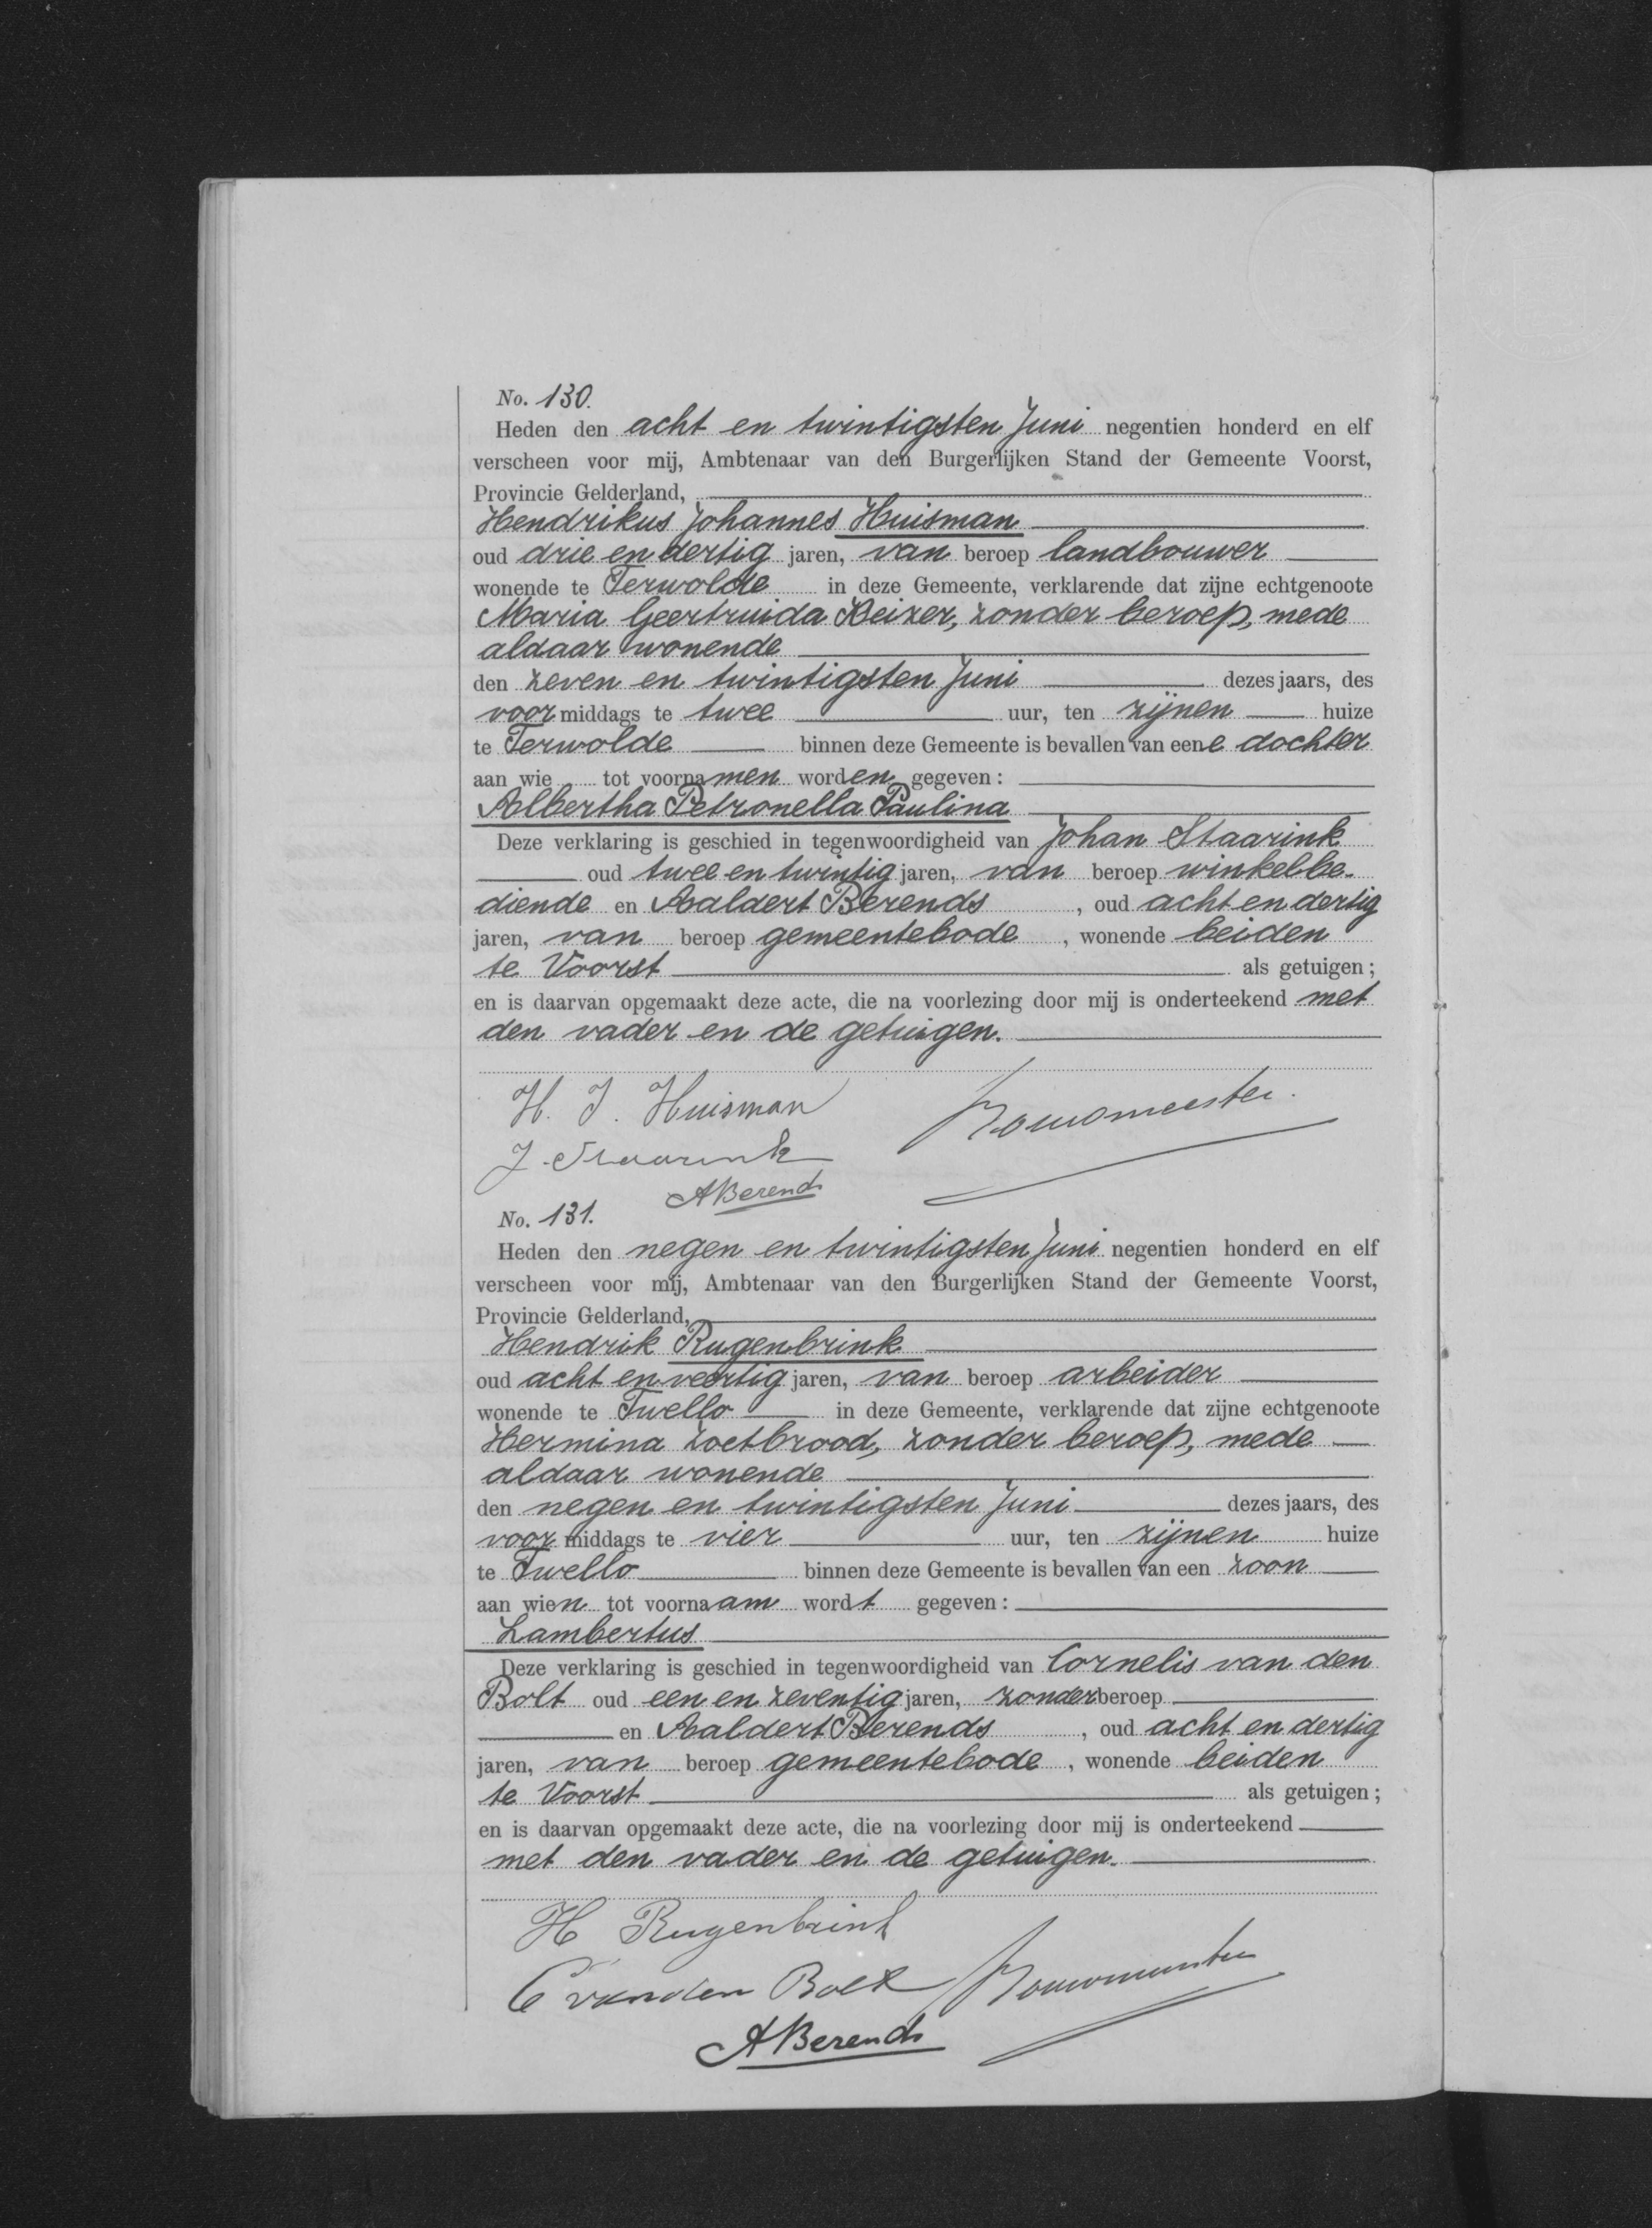 No. 130.
Heden den acht en twintigsten Juni negentien honderd en elf
verscheen voor mij, Ambtenaar van den Burgerlijken Stand der Gemeente Voorst,
Provincie Gelderland,
Hendrikus Johannes Huisman
oud drie en dertig jaren, van beroep landbouwer
wonende te Terwolde in deze Gemeente, verklarende dat zijne echtgenoote
Maria Geertruida Keizer, zonder beroep, mede
aldaar wonende
den zeven en twintigsten Juni dezes jaars, des
voor middags te twee uur, ten zijnen huize
te Terwolde binnen deze Gemeente is bevallen van eene dochter
aan wie tot voornamen worden gegeven:
Albertha Petronella Paulina
Deze verklaring is geschied in tegenwoordigheid van Johan Staarink
oud twee en twintig jaren, van beroep winkelbe-
diende en Aaldert Berends, oud acht en dertig
jaren, van beroep gemeentebode, wonende beiden
te Voorst als getuigen;
en is daarvan opgemaakt deze acte, die na voorlezing door mij is onderteekend met
den vader en de getuigen.
H. J. Huisman
J. Staarink
A Berends
No. 131.
Heden den negen en twintigsten Juni negentien honderd en elf
verscheen voor mij, Ambtenaar van den Burgerlijken Stand der Gemeente Voorst,
Provincie Gelderland,
Hendrik Rugenbrink
oud acht en veertig jaren, van beroep arbeider
wonende te Twello in deze Gemeente, verklarende dat zijne echtgenoote
Hermina Zoetbrood, zonder beroep, mede
aldaar wonende
den negen en twintigsten Juni dezes jaars, des
voor middags te vier uur, ten zijnen huize
te Twello binnen deze Gemeente is bevallen van een zoon
aan wien tot voornaam wordt gegeven:
Lambertus
Deze verklaring is geschied in tegenwoordigheid van Cornelis van den
Bolt oud een en zeventig jaren, zonder beroep
en Aaldert Berends, oud acht en dertig
jaren, van beroep gemeentebode, wonende beiden
te Voorst als getuigen;
en is daarvan opgemaakt deze acte, die na voorlezing door mij is onderteekend
met den vader en de getuigen.
H Rugenbrink
C van den Bolt
A Berends